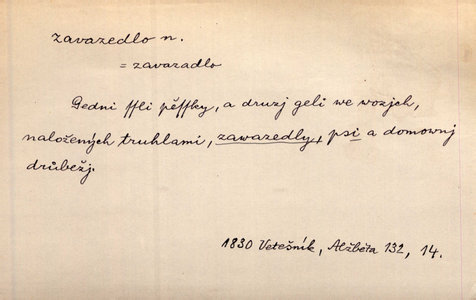 zavazedlo n.
= zavazadlo
Gedni ffli pěffky, a druzj geli we wozjch,
naložených truhlami, zawazedly, psi a domownj
drůbežj.
1830 Vetešník, Alžběta 132, 14.